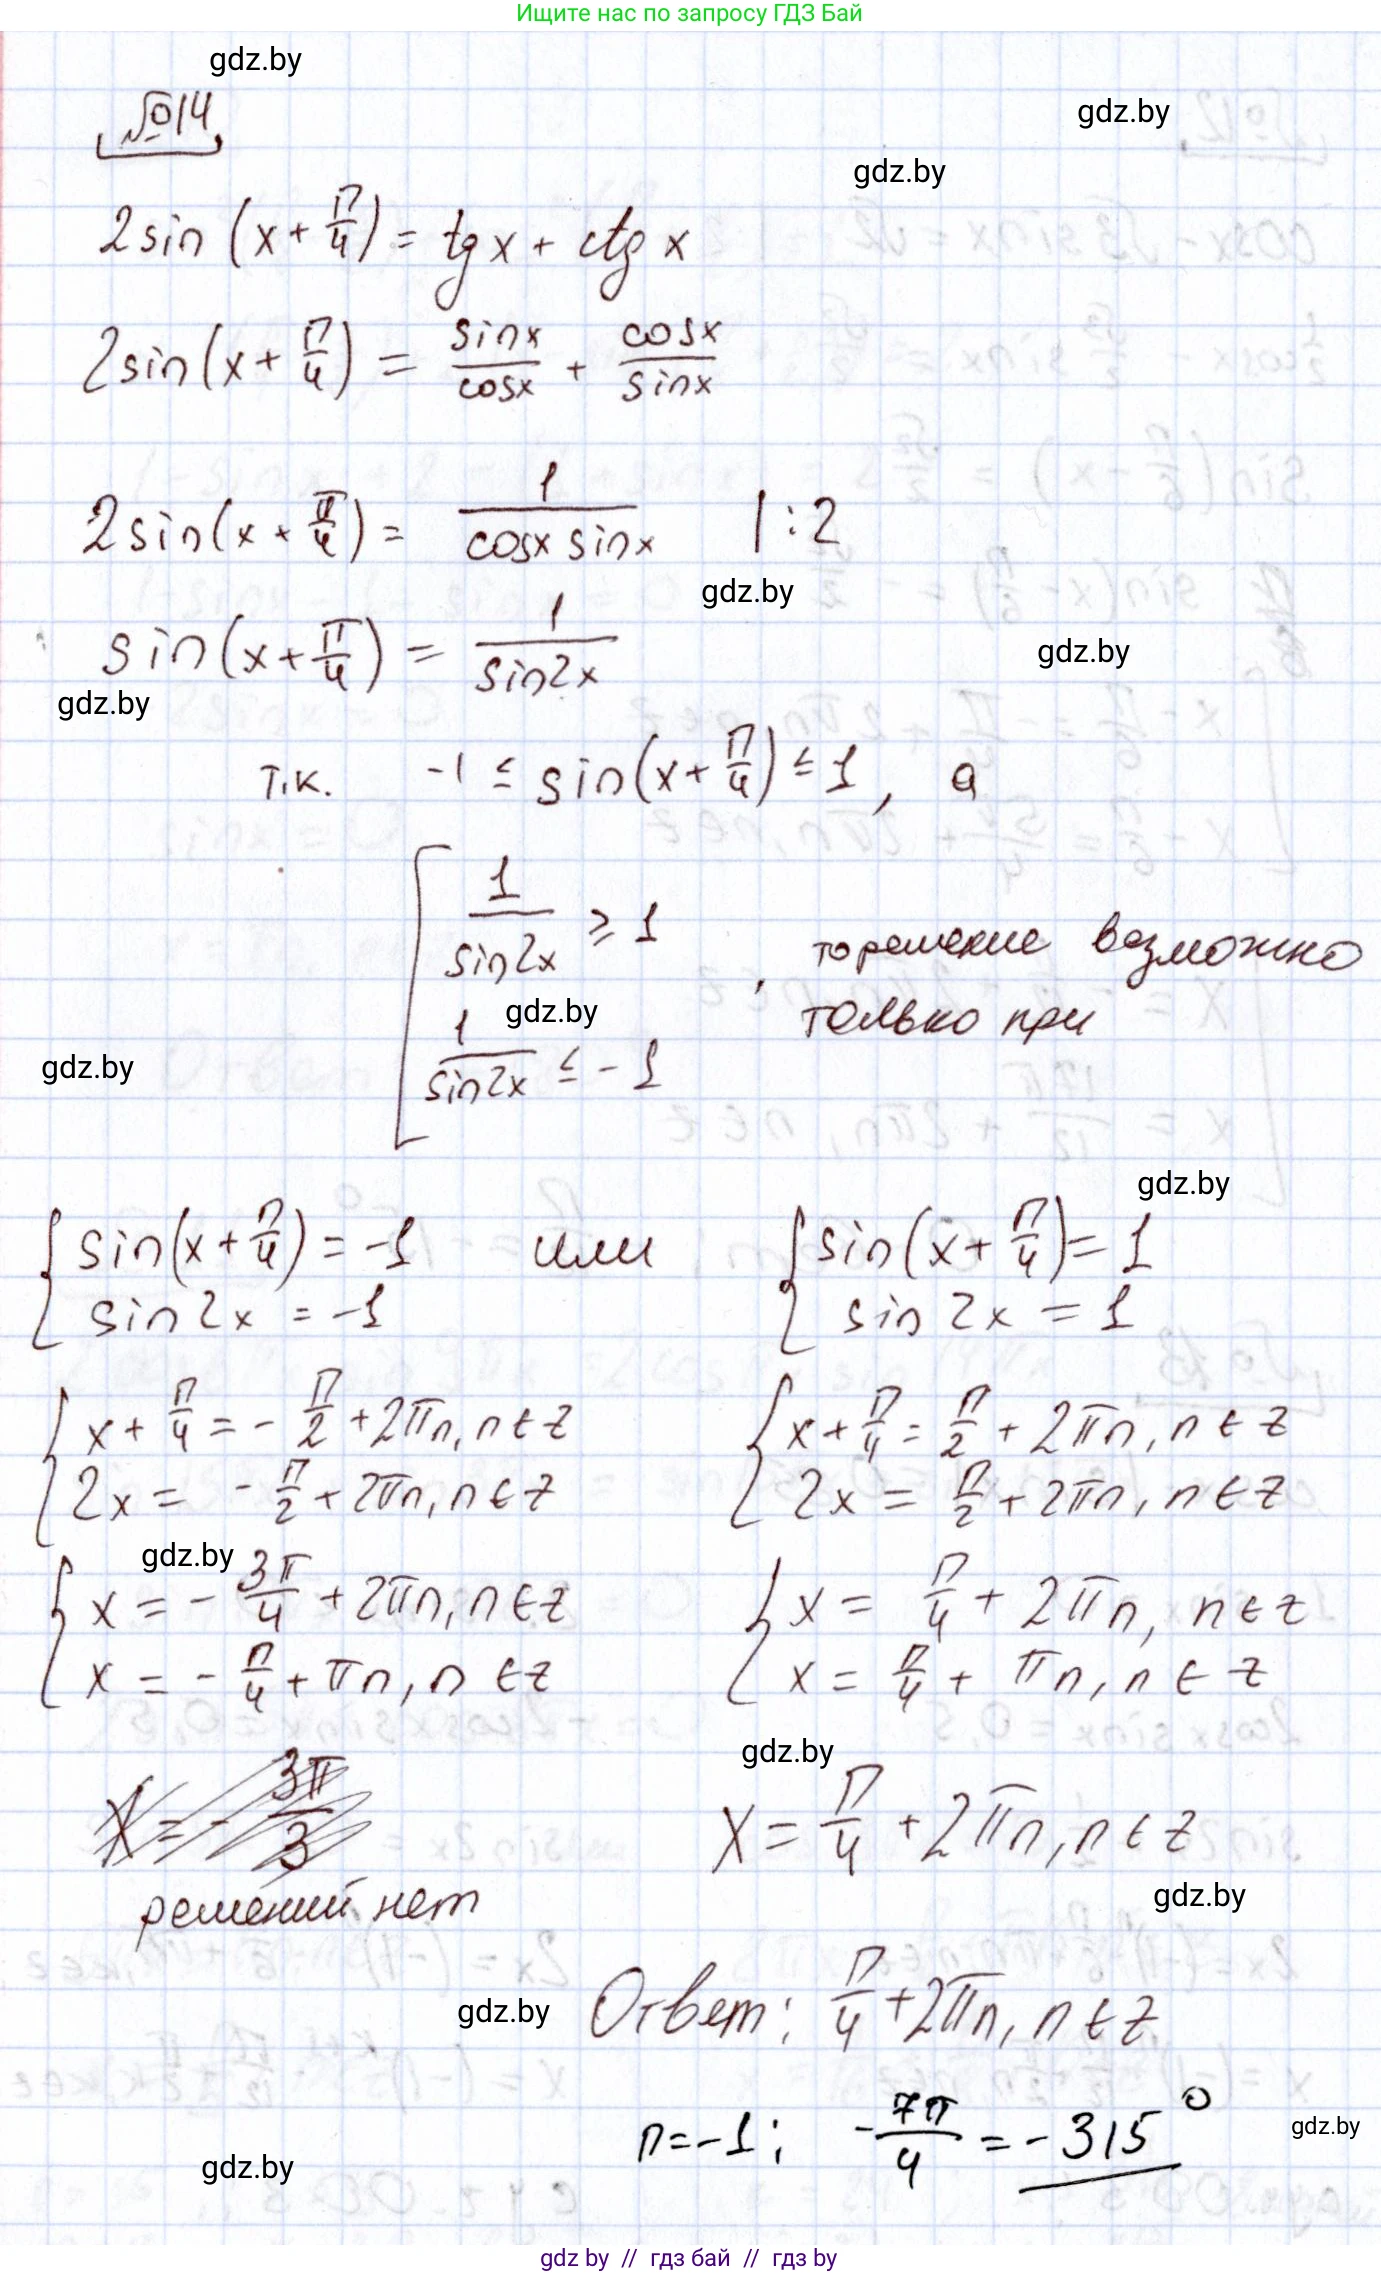 Ищите нас по запросу ГДЗ Бай
gdz.by
№14
gdz.by
gdz.by
2sin(x + π/4) = tgx + ctgx
2sin(x + π/4) = sinx/cosx + cosx/sinx
2sin(x + π/4) = 1/(cosx sinx) |:2
gdz.by
sin(x + π/4) = 1/sin2x
gdz.by
gdz.by
т.к. -1 ≤ sin(x + π/4) ≤ 1, а
[ 1/sin2x ≥ 1
, то решение возможно
только при
gdz.by
1/sin2x ≤ -1
gdz.by
gdz.by
{ sin(x + π/4) = -1 или { sin(x + π/4) = 1
sin2x = -1 sin2x = 1
{ x + π/4 = -π/2 + 2πn, n∈z { x + π/4 = π/2 + 2πn, n∈z
2x = -π/2 + 2πn, n∈z 2x = π/2 + 2πn, n∈z
gdz.by
{ x = -3π/4 + 2πn, n∈z { x = π/4 + 2πn, n∈z
x = -π/4 + πn, n∈z x = π/4 + πn, n∈z
gdz.by
x = -3π/3 x = π/4 + 2πn, n∈z
gdz.by
решений нет
gdz.by
Ответ: π/4 + 2πn, n∈z
n = -1; -7π/4 = -315°
gdz.by
gdz.by
gdz by // гдз бай // гдз by